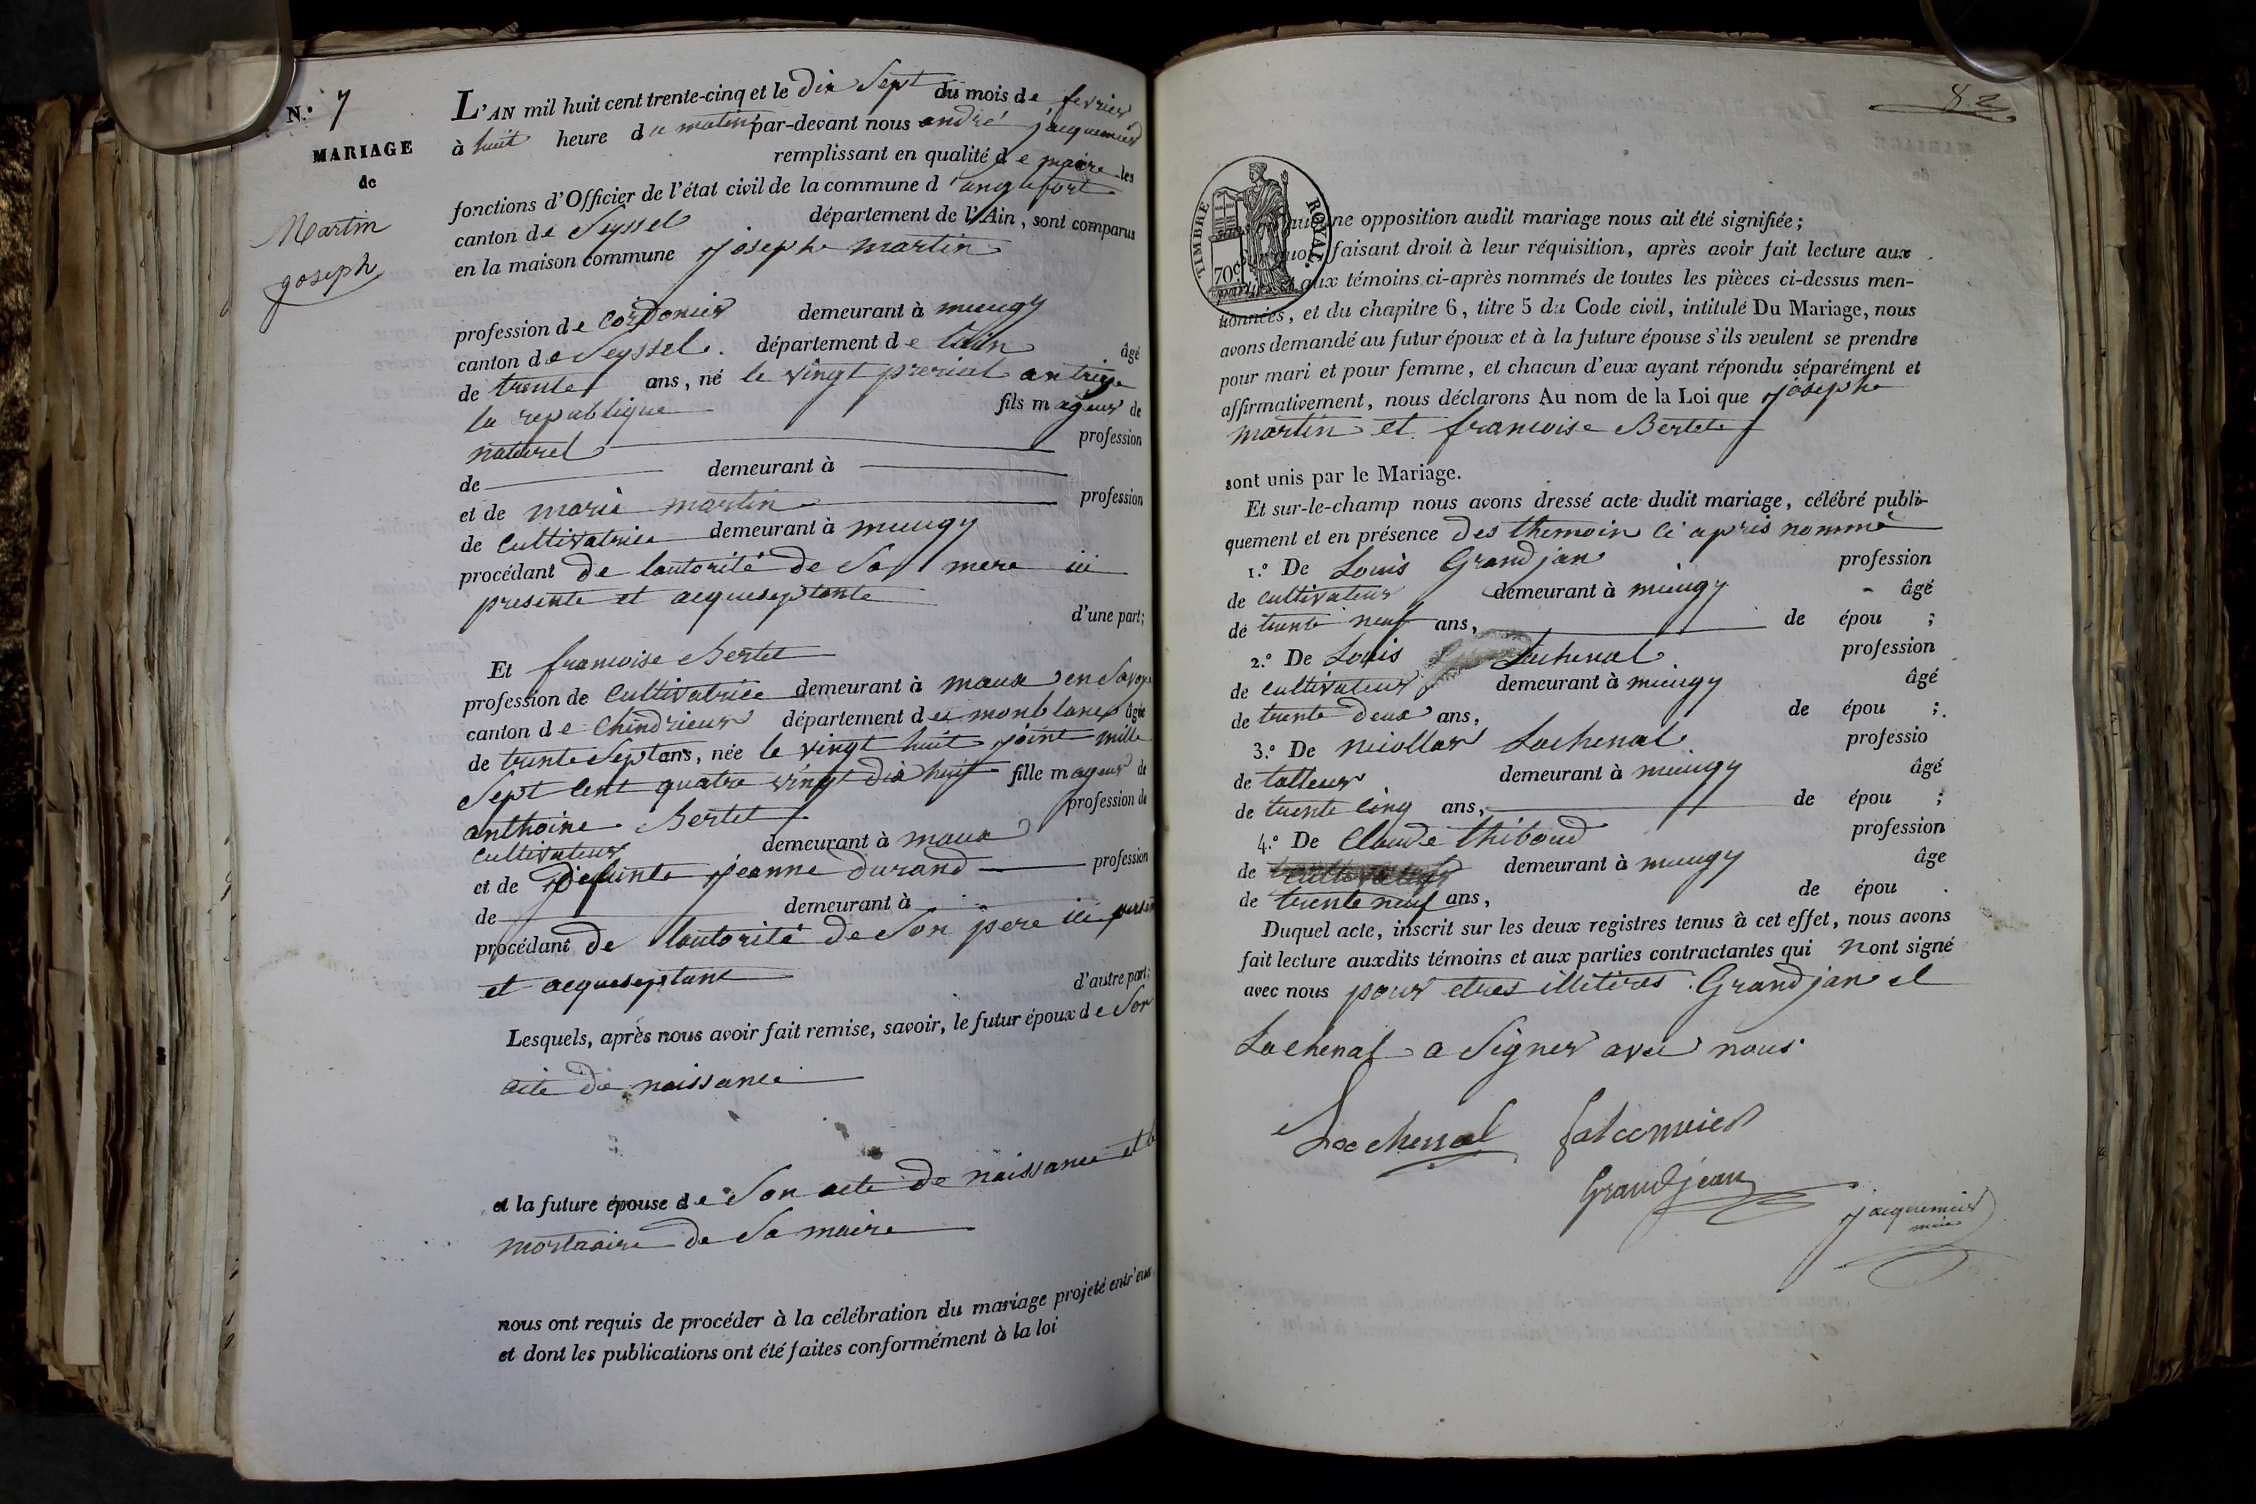 N.° 7
MARIAGE
de
Martin
joseph
L'AN mil huit cent trente-cinq et le dix Sept du mois de fevrier
à huit heure du matin par-devant nous andré jacquemier
remplissant en qualité de maire les
fonctions d'Officier de l'état civil de la commune d'anglefort
canton de Seyssel département de l'Ain, sont comparus
en la maison commune joseph martin
profession de Cordonier demeurant à mieugy
canton de Seyssel. département de lain âgé
de trente ans, né le vingt prerial an treize
la republique fils mageur de
naturel profession
de demeurant à
et de marie martin profession
de Cultivatrice demeurant à mieugy
procédant de lautorité de Sa mere ici
presente et acqueseptante
d'une part;
Et francoise Bertet
profession de Cultivatrice demeurant à maux en Savoye
canton de Chindrieux département du montblanc âgée
de trente Sept ans, née le vingt huit joint mille
Sept Cent quatre vingt dix huit fille mageur de
anthoine Bertet profession de
Cultivateur demeurant à maux
et de defunte jeanne durand profession
de demeurant à
procédant de lautorité de Son pere ici
et acqueseptant
d'autre part;
Lesquels, après nous avoir fait remise, savoir, le futur époux de Son
acte de naissance
et la future épouse de Son acte de naissance et le
mortuaire de Sa maire
nous ont requis de procéder à la célébration du mariage projeté entr'eux
et dont les publications ont été faites conformément à la loi
82
TIMBRE ROYAL.
70c
aucune opposition audit mariage nous ait été signifiée;
faisant droit à leur réquisition, après avoir fait lecture aux
parties et aux témoins ci-après nommés de toutes les pièces ci-dessus men-
tionnées, et du chapitre 6, titre 5 du Code civil, intitulé Du Mariage, nous
avons demandé au futur époux et à la future épouse s'ils veulent se prendre
pour mari et pour femme, et chacun d'eux ayant répondu séparément et
affirmativement, nous déclarons Au nom de la Loi que joseph
martin et francoise Bertet
sont unis par le Mariage.
Et sur-le-champ nous avons dressé acte dudit mariage, célébré publi-
quement et en présence des themoin ci apris nommé
1.° De Louis Grandjan profession
de cultivateur demeurant à mieugy âgé
de trente neuf ans, de épou ;
2.° De Louis Lachenal profession
de cultivateur demeurant à mieugy âgé
de trente deux ans, de épou ;
3.° De nicollas Lachenal professio
de talleur demeurant à mieugy âgé
de trente cinq ans, de épou ;
4.° De Claude thiboud profession
de cultivateur demeurant à mieugy âge
de trente neuf ans, de épou .
Duquel acte, inscrit sur les deux registres tenus à cet effet, nous avons
fait lecture auxdits témoins et aux parties contractantes qui nont signé
avec nous pour etres illitires. Grandjan et
Lachenal a Signer avec nous
Lachenal falconnier
Grandjean
jacquemier
maire